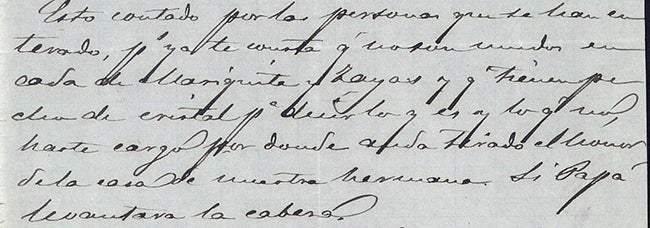 Esto contado por las personas que se han en
terado, pª ya te consta q no son mudos en
casa de Mariquita Zayas y qe tienen pe
cho de cristal pª decir lo q es y lo q no,
harte cargo por donde anda tirado el honor
de la casa de nuestra hermana. Si Papá
levantara la cabeza